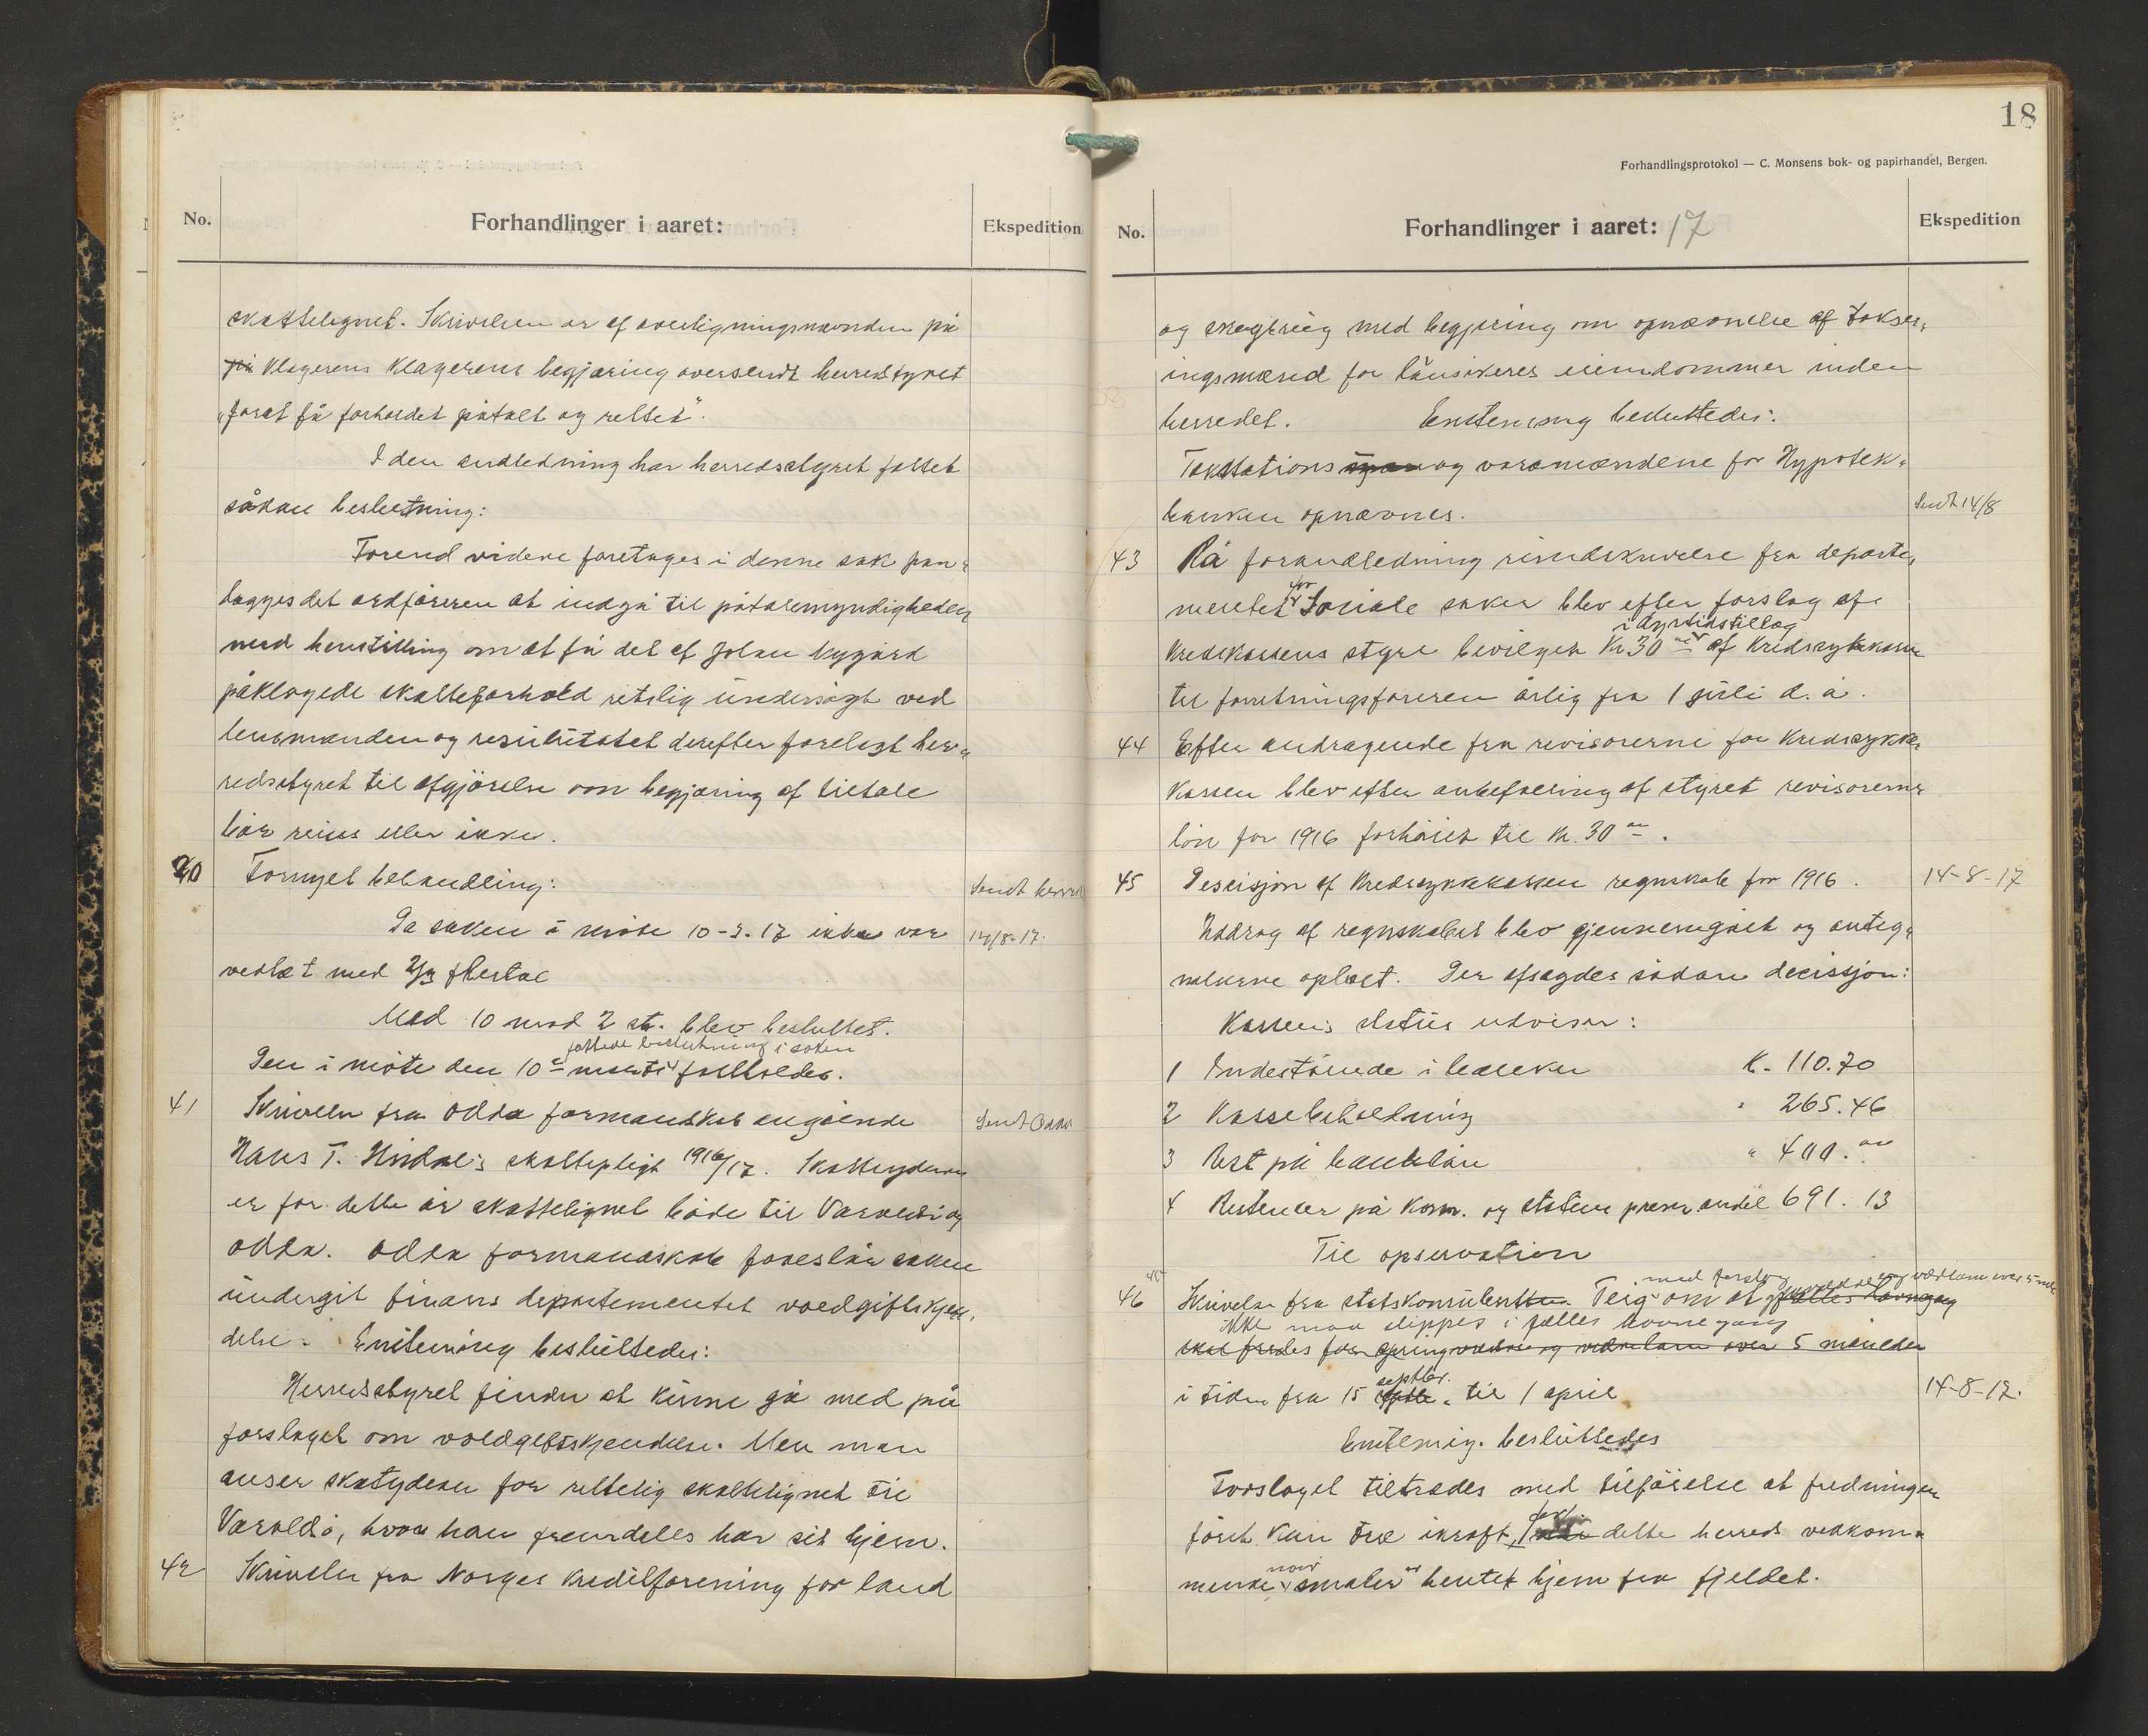 No.
Forhandlinger i aaret:
Ekspedition
skattelignet. Skrivelsen er af overligningsnævnden på
på Klagerens Klagerens begjæring oversendt herredstyret
"forat få forholdet påtalt og rettet".
I den andledning har herredsstyret fattet
sådan beslutning:
Forend videre foretages i denne sak pan-
lægges det ordföreren at indgå til påtalemyndigheden
med henstilling om at få det af Johan Nygård
påklagede skatteforhold retslig undersögt ved
lensmanden og resultatet derefter forelagt her-
redsstyret til afgjörelse om begjæring af tiltale
bör reises eller ikke.
40 Fornyet behandling:
Sendt herred
Da saken i möte 10-3-17 ikke var
14/8-17.
vedtat med 2/3 flertal
Med 10 mod 2 st. blev besluttet.
fattede beslutning i saken
Den i möte den 10de marts fastholdes.
41 Skrivelse fra Odda formandskab angående
Sendt Odda
Hans T. Hisdal's skattepligt 1916/17. Skatteyderen
er for dette år skattelignet både til Varaldsö og
Odda. Odda formandskab foreslår saken
undergit finans departementet voldgiftskjen-
delse. Enstemmig besluttedes:
Herredsstyret finder at kunne gå med på
forslaget om voldgiftskjendelse. Men man
anser skatyderen for rettelig skattelignet til
Varaldsö, hvor han fremdeles har sit hjem.
42 Skrivelse fra Norges Kreditforening for land
18
Forhandlingsprotokol — C. Monsens bok- og papirhandel, Bergen.
No.
Forhandlinger i aaret: 17
Ekspedition
og skogbrug med begjæring om opnævnelse af takser-
ingsmænd for lånsökeres eiendommer inden
herredet. Enstemmig besluttedes:
Takstations og varamændene for Hypotek-
banken opnævnes.
Sendt 14/8
43 På forandledning rundskrivelse fra departe-
for
mentet Sociale saker blev efter forslag af
i dyrtidstillæg
Kredskassens styre bevilget Kr 30 af Kredssykekasse
til forretningsföreren årlig fra 1 juli d. å.
44 Efter andragende fra revisorerne for Kredssyke-
kassen blev efter anbefaling af styret revisorernes
lön for 1916 forhöiet til kr. 30
45 Descisjon af Kredssykekassen regnskab for 1916.
14-8-17
Uddrag af regnskabet blev gjennemgået og anteg-
nelserne oplæst. Der afsagdes sådan decissjon:
Kassens status utviser:
1 Indestående i banken K. 110.70
2 Kassebeholdning " 265.46
3 Rest på banklån " 400.
4 Restencer på kom. og statens præm. andel 691.13
Til opservation
med forslag
46 Skrivelse fra statskonsulent Teig om at fælles havnegang
ikke maa slippes i fælles havnegang
skal fredes for springvædre og vædrelam over 5 måneder
septbr.
i tiden fra 15 til 1 april
14-8-17.
Enstemig. besluttedes
Forslaget tiltrædes med tilföielse at fredningen
for
först kan træ ikraft dette herreds vedkom-
naar
mende smaler er hentet hjem fra fjeldet.